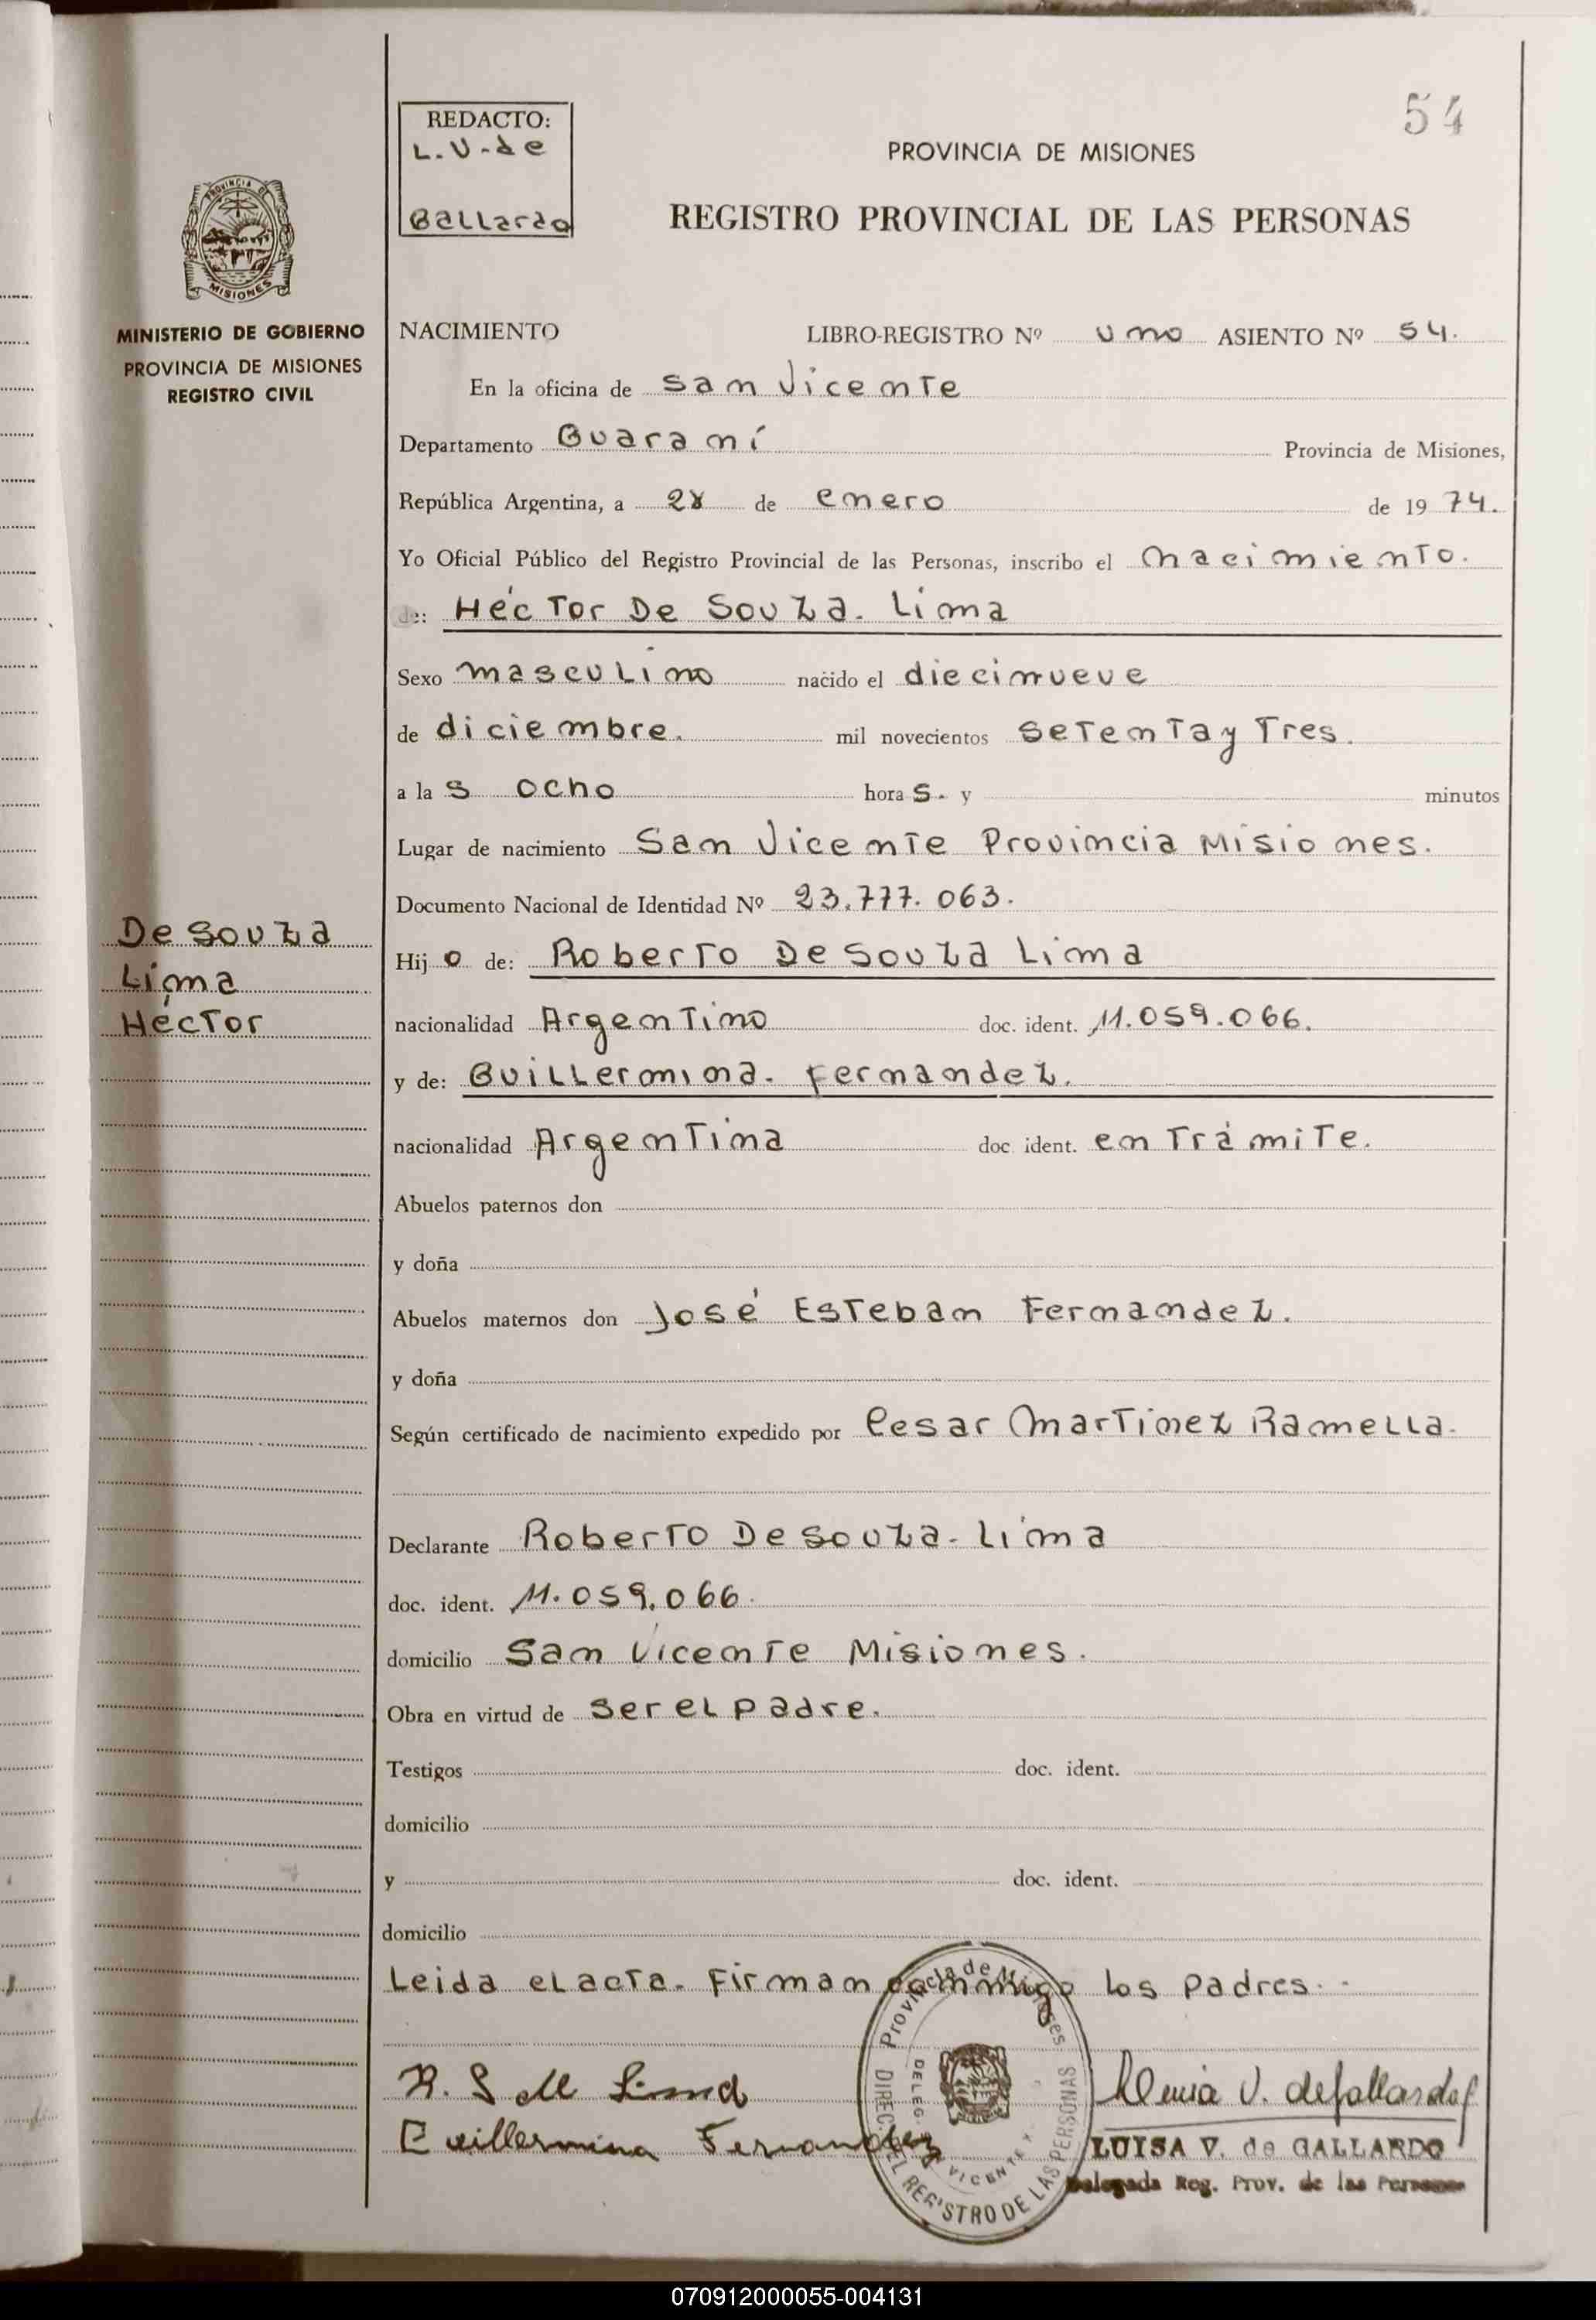 54
REDACTO:
L. V. de
Gallardo
PROVINCIA DE MISIONES
REGISTRO PROVINCIAL DE LAS PERSONAS
PROVINCIA DE
MISIONES
MINISTERIO DE GOBIERNO
PROVINCIA DE MISIONES
REGISTRO CIVIL
NACIMIENTO LIBRO-REGISTRO Nº uno ASIENTO Nº 54.
En la oficina de San Vicente
Departamento Guaraní Provincia de Misiones,
República Argentina, a 28 de enero de 1974.
Yo Oficial Público del Registro Provincial de las Personas, inscribo el nacimiento.
de: Héctor De Souza. Lima
Sexo masculino nacido el diecinueve
de diciembre. mil novecientos setenta y Tres.
a las ocho horas. y minutos
Lugar de nacimiento San Vicente Provincia Misiones.
Documento Nacional de Identidad Nº 23.777.063.
De Souza
Lima
Héctor
Hijo de: Roberto De Souza Lima
nacionalidad Argentino doc. ident. 11.059.066.
y de: Guillermina. Fernandez.
nacionalidad Argentina doc. ident. en Trámite.
Abuelos paternos don
y doña
Abuelos maternos don José Esteban Fernandez.
y doña
Según certificado de nacimiento expedido por Cesar Martinez Ramella.
Declarante Roberto De Souza. Lima
doc. ident. 11.059.066.
domicilio San Vicente Misiones.
Obra en virtud de ser el padre.
Testigos doc. ident.
domicilio
y doc. ident.
domicilio
Leida el acta. Firman conmigo los padres.
Guillermina Fernandez
Provincia de Misiones
DIREC. DEL REGISTRO DE LAS PERSONAS
DELEG. VICENTE
V. de Gallardo
LUISA V. de GALLARDO
Delegada Reg. Prov. de las Personas
070912000055-004131